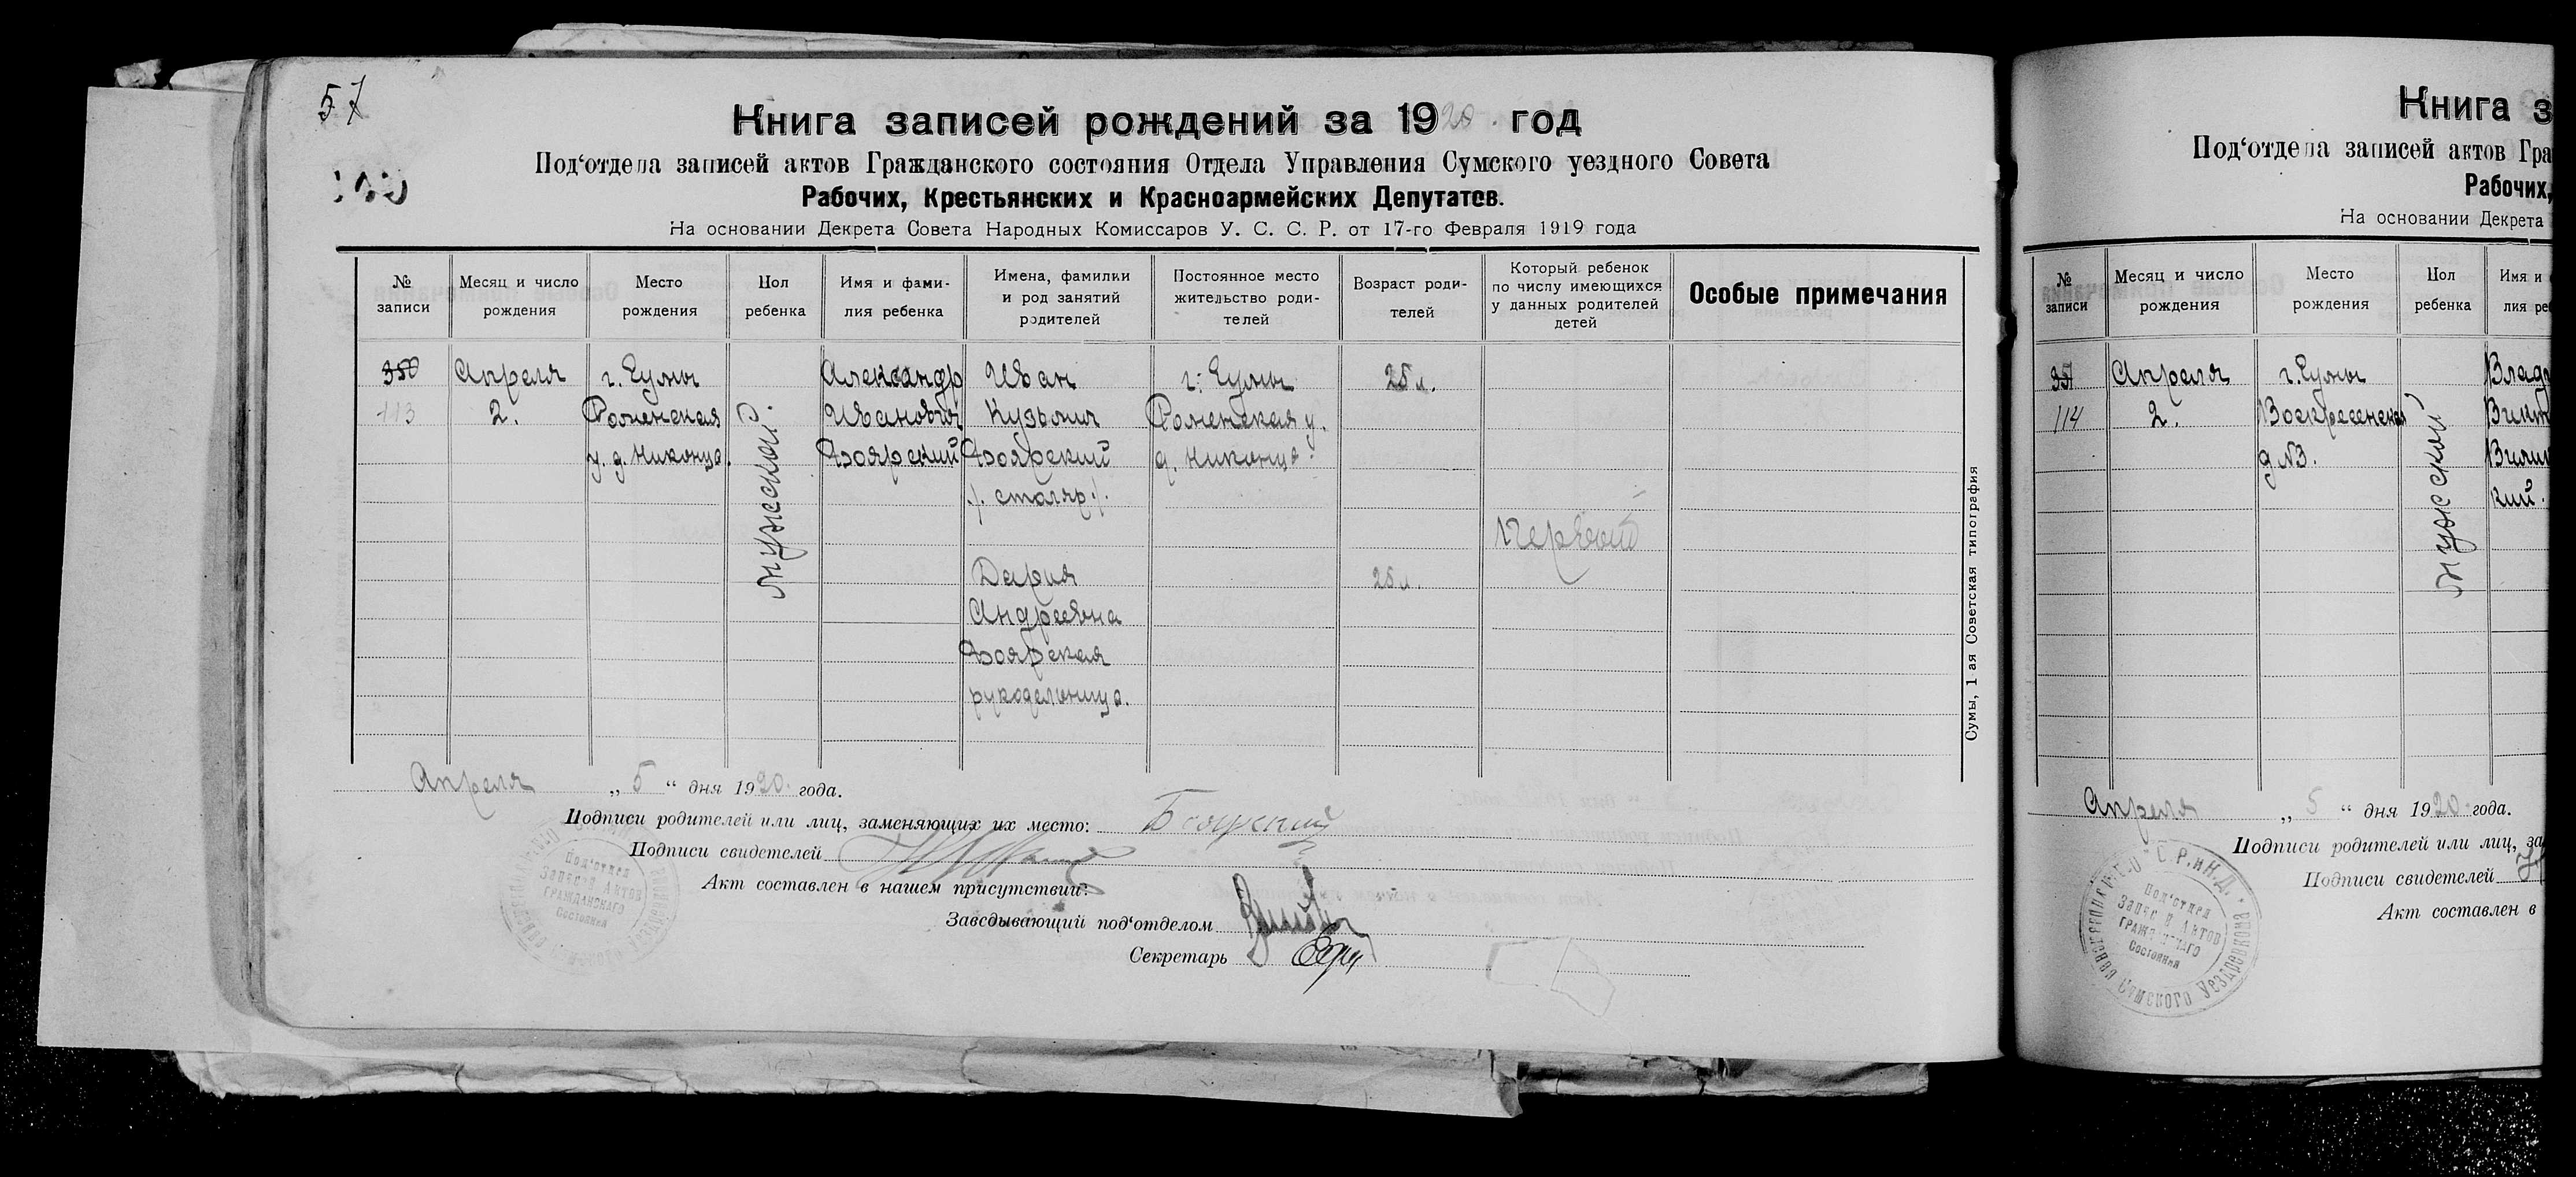 57
Книга записей рождений за 1920. год
Под‘отдела записей актов Гражданского состояния Отдела Управления Сумского уездного Совета
Рабочих, Крестьянских и Красноармейских Депутатов.
На основании Декрета Совета Народных Комиссаров У. С. С. Р. от 17-го Февраля 1919 года
№ записи
Месяц и число рождения
Место рождения
Пол ребенка
Имя и фамилия ребенка
Имена, фамилии и род занятий родителей
Постоянное место жительство родителей
Возраст родителей
Который ребенок по числу имеющихся у данных родителей детей
Особые примечания
350
113
Апреля
2.
г. Сумы
Роменская
у. д. Никонца.
мужской
Александр
Иванович
Боярский
Иван
Кузьмич
Боярский
/. столяр./.
Дария
Андреевна
Боярская
рукодельница.
г. Сумы
Роменская у.
д. Никонца.
25 л.
25 л.
Первый
Сумы, 1-ая Советская типография
Апреля „ 5 “ дня 1920. года.
Подписи родителей или лиц, заменяющих их место: Боярский
Подписи свидетелей
Акт составлен в нашем присутствии:
Заведывающий под‘отделом
Секретарь
Под‘отдел
Записей Актов
ГРАЖДАНСКАГО
Состояния
Книга з
Под‘отдела записей актов Гра
Рабочих,
На основании Декрета
№ записи
Месяц и число рождения
Место рождения
Пол ребенка
Имя и
лия реб
351
114
Апреля
2.
г. Сумы
Воскресенская
д №3.
мужской
Влад
Викт
кий.
Апреля „ 5 “ дня 1920 года.
Подписи родителей или лиц, за
Подписи свидетелей
Акт составлен в
С.Р. и К.Д.
Под‘отдел
Записей Актов
ГРАЖДАНСКАГО
Состояния
Сумского Уездревкома